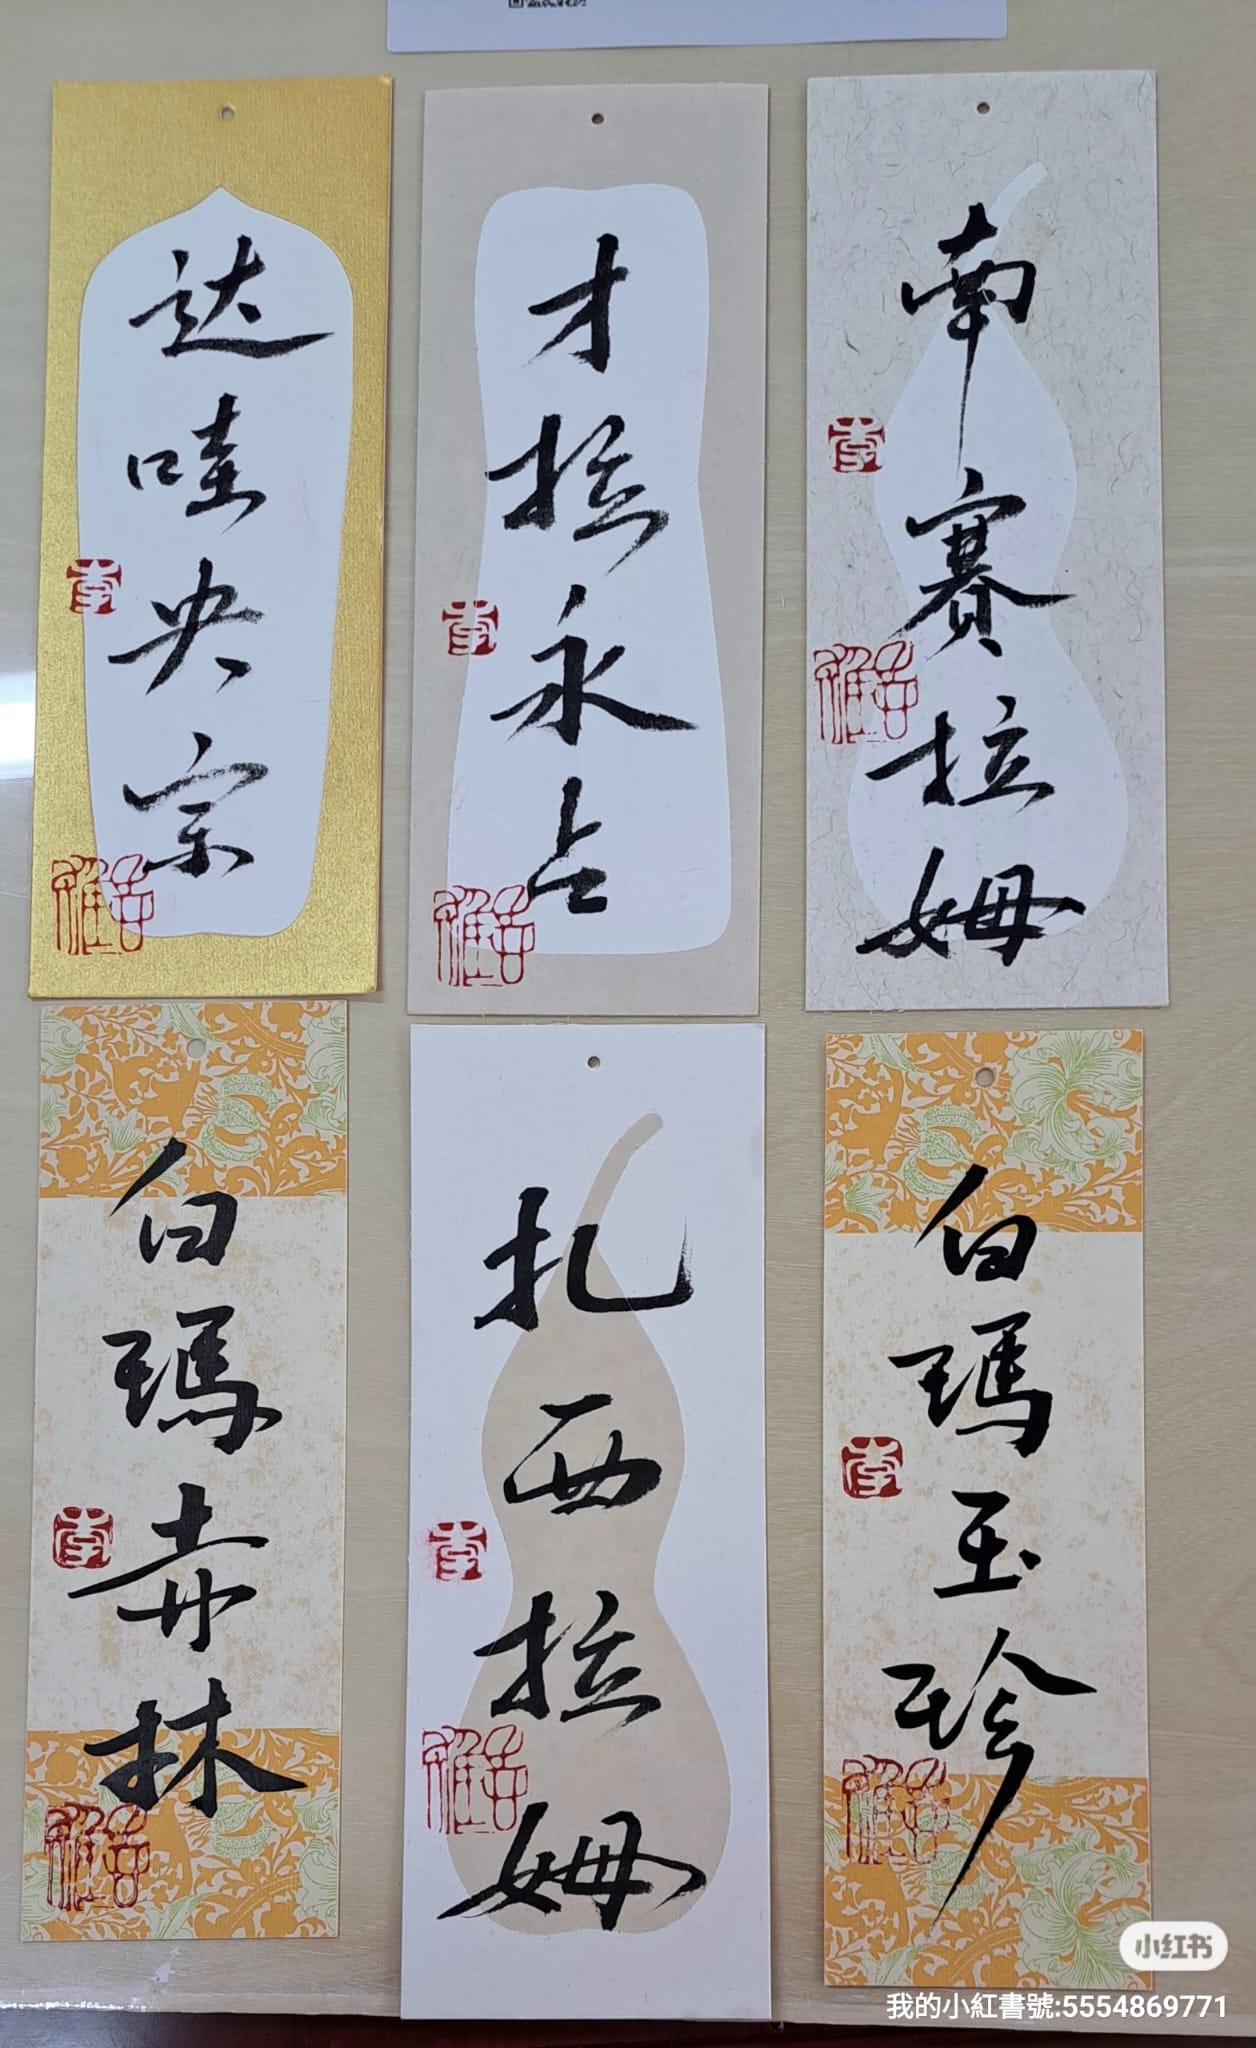 达哇央宗
才拉永占
南赛拉姆
白瑪赤林
扎西拉姆
白瑪玉珍
小红书
我的小紅書號:5554869771